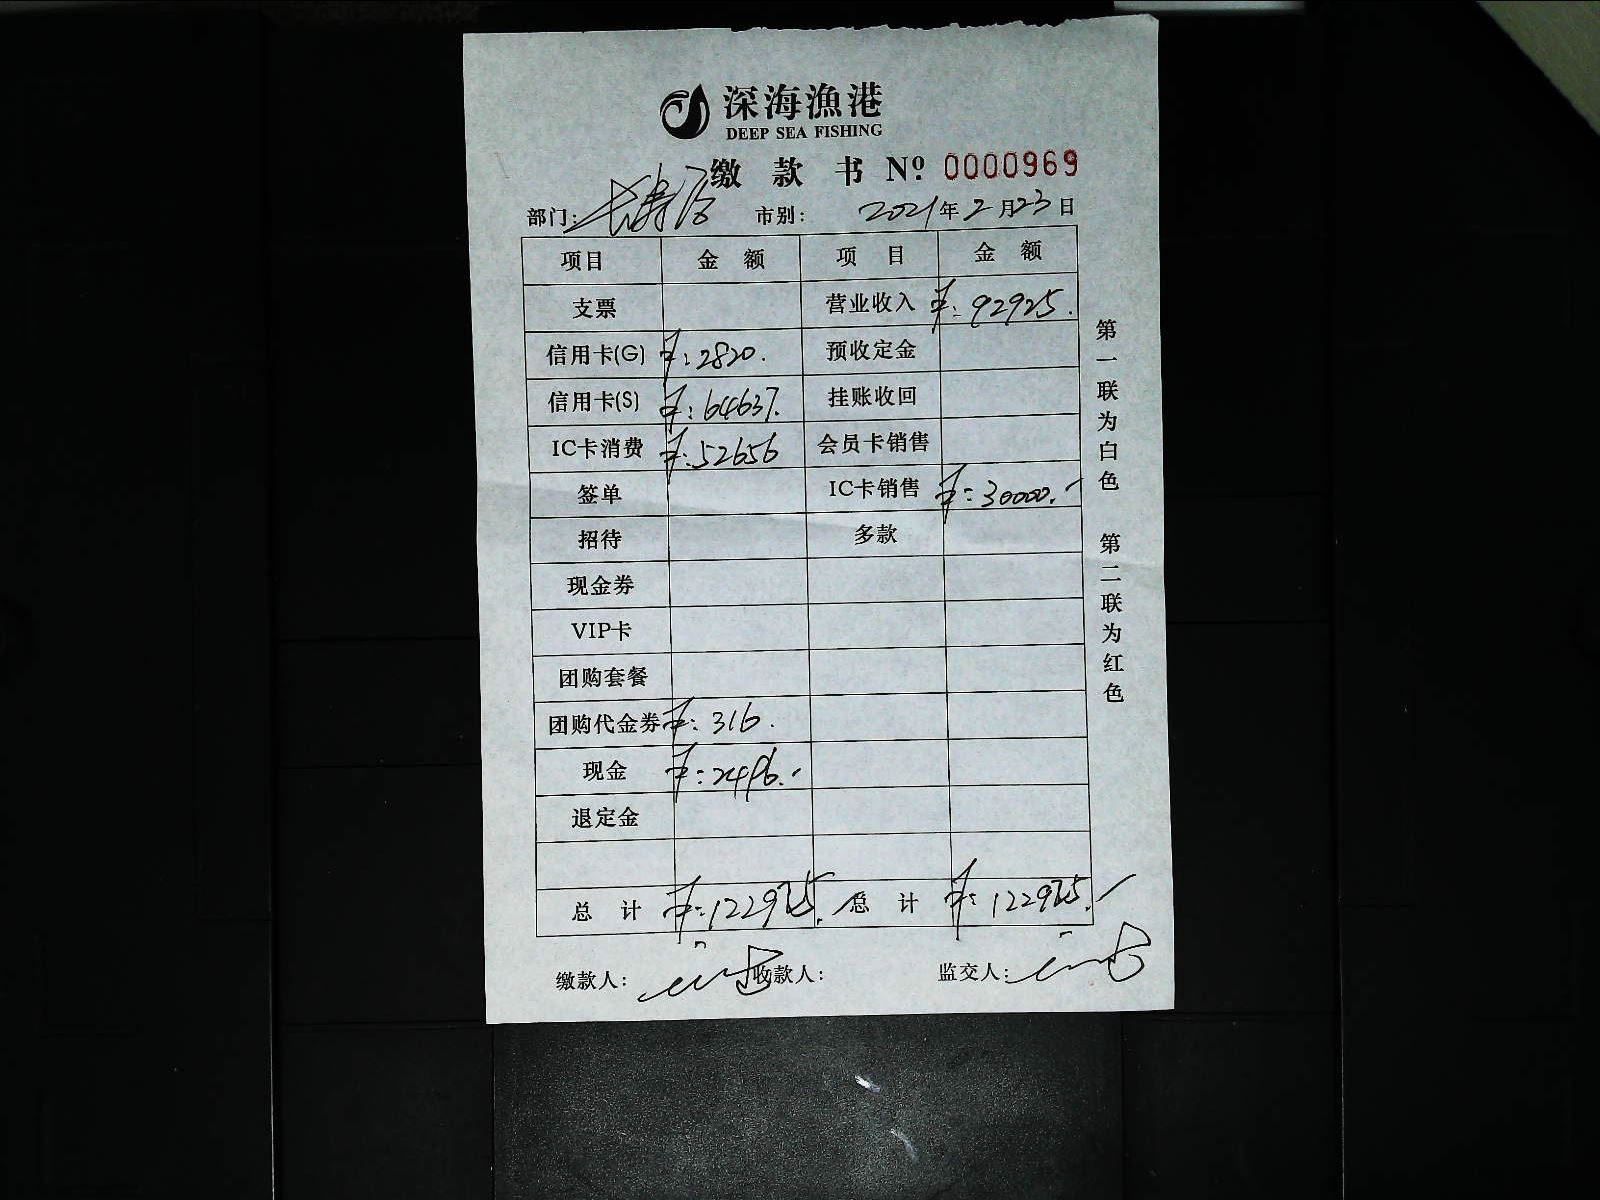 深海渔港
DEEP SEA FISHING
缴款书 Nº 0000969
部门: 长寿路 市别: 2021年2月23日
项目 金额 项目 金额
支票 营业收入 ¥:92925.
信用卡(G) ¥:2820. 预收定金
信用卡(S) ¥:64637. 挂账收回
IC卡消费 ¥:52656 会员卡销售
签单 IC卡销售 ¥:30000.-
招待 多款
现金券
VIP卡
团购套餐
团购代金券 ¥:316.
现金 ¥:2496.-
退定金
总计 ¥:122925.- 总计 ¥:122925.-
缴款人: 收款人: 监交人:
第一联为白色 第二联为红色